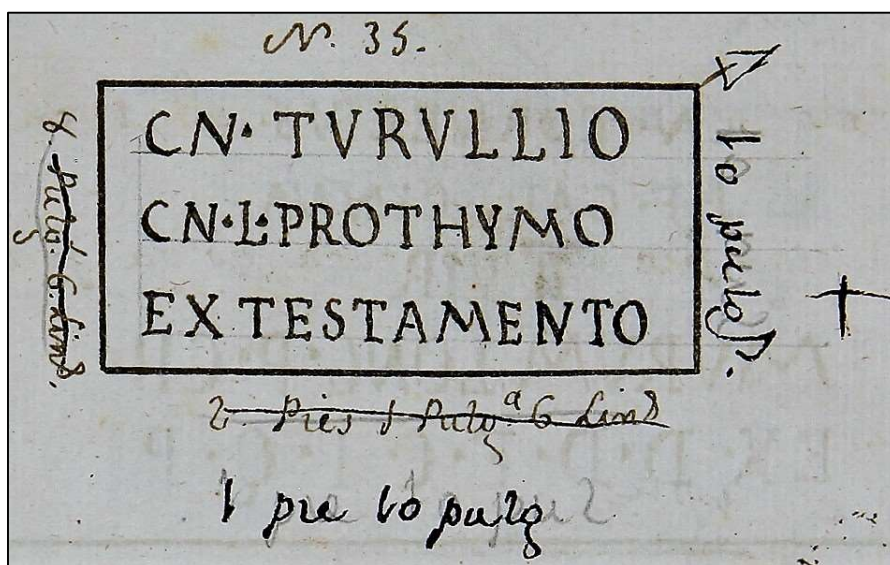 N. 35.
CN· TVRVLLIO
CN·L·PROTHYMO
EX TESTAMENTO
10 pulg.
2 Pies 1 Pulgª 6 Lins
1 pie 10 pulg